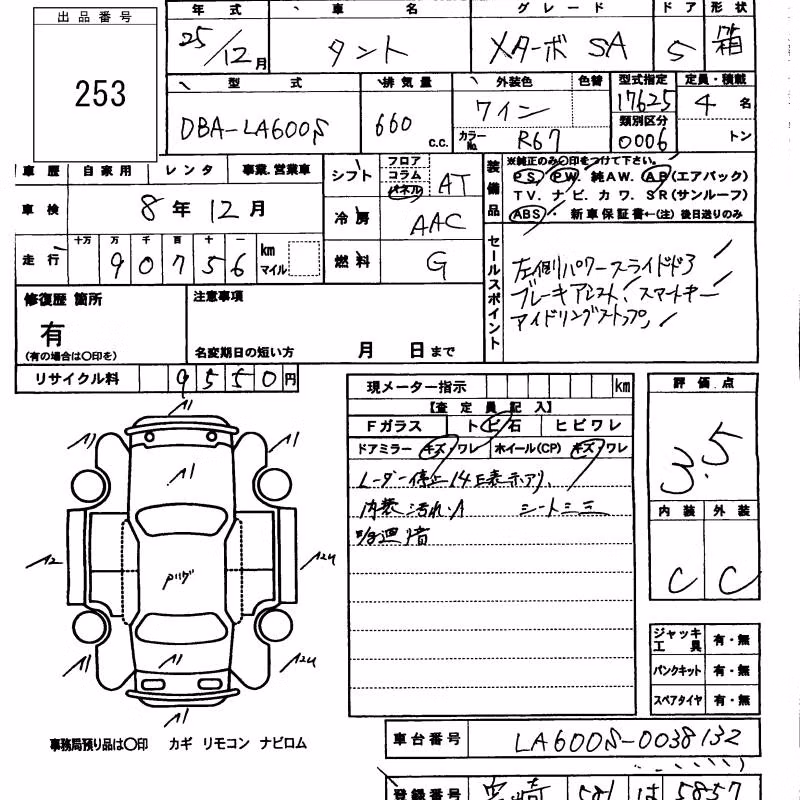 出品番号
253
年式 車名 グレード ドア 形状
25/12月 タント Xターボ SA 5 箱
型式 排気量 外装色 色替 型式指定 定員・積載
DBA-LA600S 660 c.c. ワイン 17625 4名
カラーNo. R67 類別区分 0006 トン
車歴 自家用 レンタ 事業.営業車
シフト フロア コラム パネル AT
車検 8年12月
冷房 AAC
走行 十万 万 千 百 十 一
90756 km マイル
燃料 G
装備品
※純正のみ〇印をつけて下さい。
PS. PW. 純AW. AB(エアバック)
TV. ナビ. カワ. SR(サンルーフ)
ABS・ 新車保証書←(注)後日送りのみ
セールスポイント
左側パワースライドドア
ブレーキアシスト、スマートキー
アイドリングストップ
修復歴 箇所
有
(有の場合は〇印を)
注意事項
名変期日の短い方 月 日まで
リサイクル料 9550円
現メーター指示 km
【査定員記入】
Fガラス トビ石 ヒビワレ
ドアミラー キズ・ワレ ホイール(CP) キズ・ワレ
内装汚れ・A
評価点
3.5
内装 外装
C C
A1 A1
A1
A2
A1
A1
ジャッキ工具 有・無
パンクキット 有・無
スペアタイヤ 有・無
事務局預り品は〇印 カギ リモコン ナビロム
車台番号 LA600S-0038132
登録番号 宮崎 581 は 5857